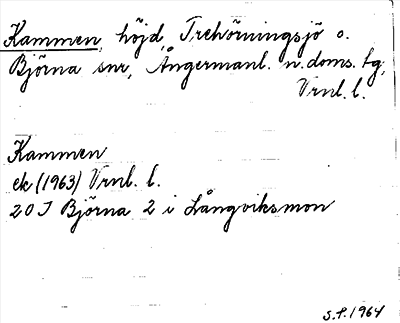 Kammen, höjd, Trehörningsjö o.
Björna snr, Ångermanl. n. doms. tg,
Vrnl. l.
Kammen
ek (1963) Vrnl. l.
20 J Björna 2 i Långviksmon
S.P. 1964